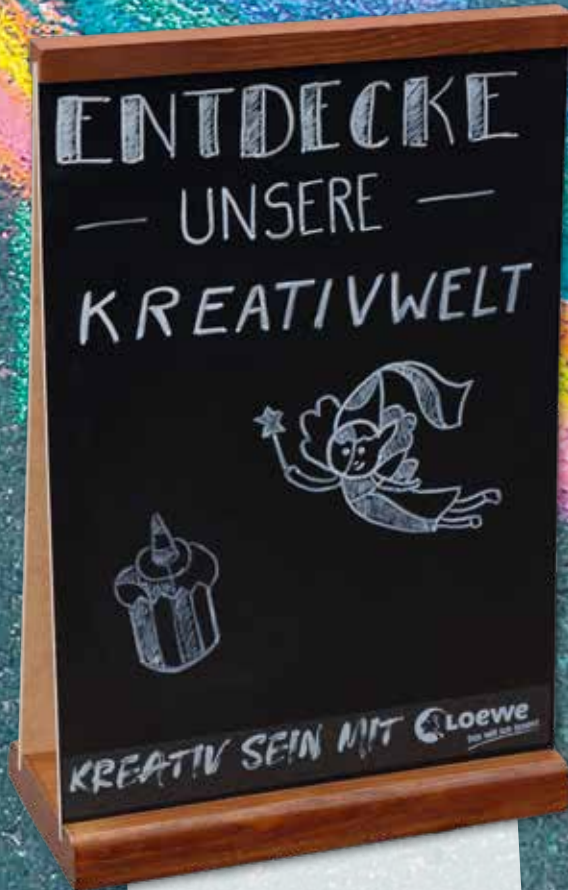 ENTDECKE
— UNSERE —
KREATIVWELT
KREATIV SEIN MIT Loewe